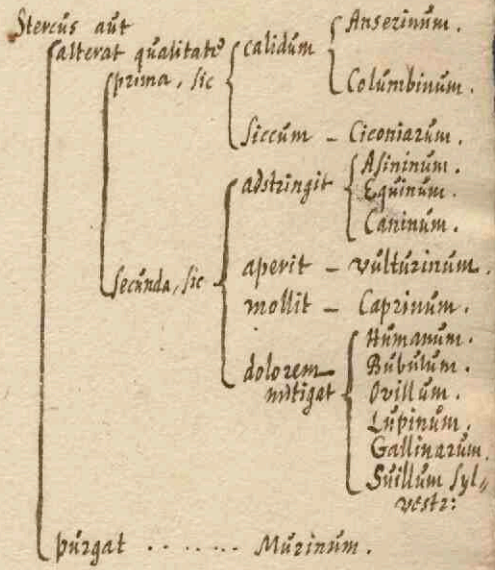 Stercus aut
alterat qualitate
prima, sic
calidum
Anserinum.
Columbinum.
siccum – Ciconiarum.
secunda, sic
adstringit
Asininum.
Equinum.
Caninum.
aperit – vulturinum.
mollit – Caprinum.
dolorem
mitigat
Humanum.
Bubulum.
Ovillum.
Lupinum.
Gallinarum.
Suillum syl⸗
vestr:
purgat ........ Murinum.